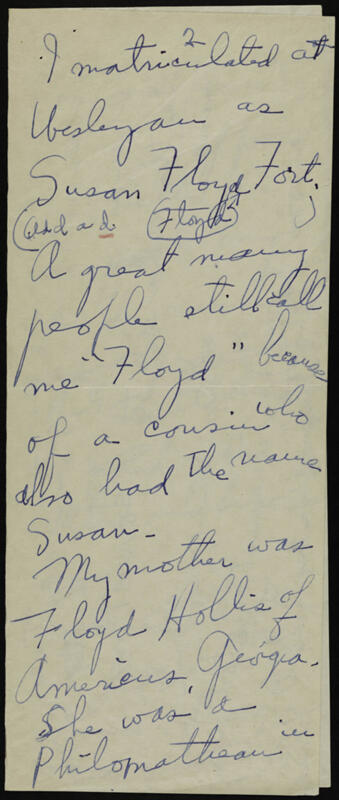 I matriculated at
2
Wesleyan as
Susan Floyd Fort,
(add a d. (Floyd)
A great many
people still call
me "Floyd" because
of a cousin who
also had the name
Susan -
My mother was
Floyd Hollis of
Americus, Georgia.
She was a
Philomathean in